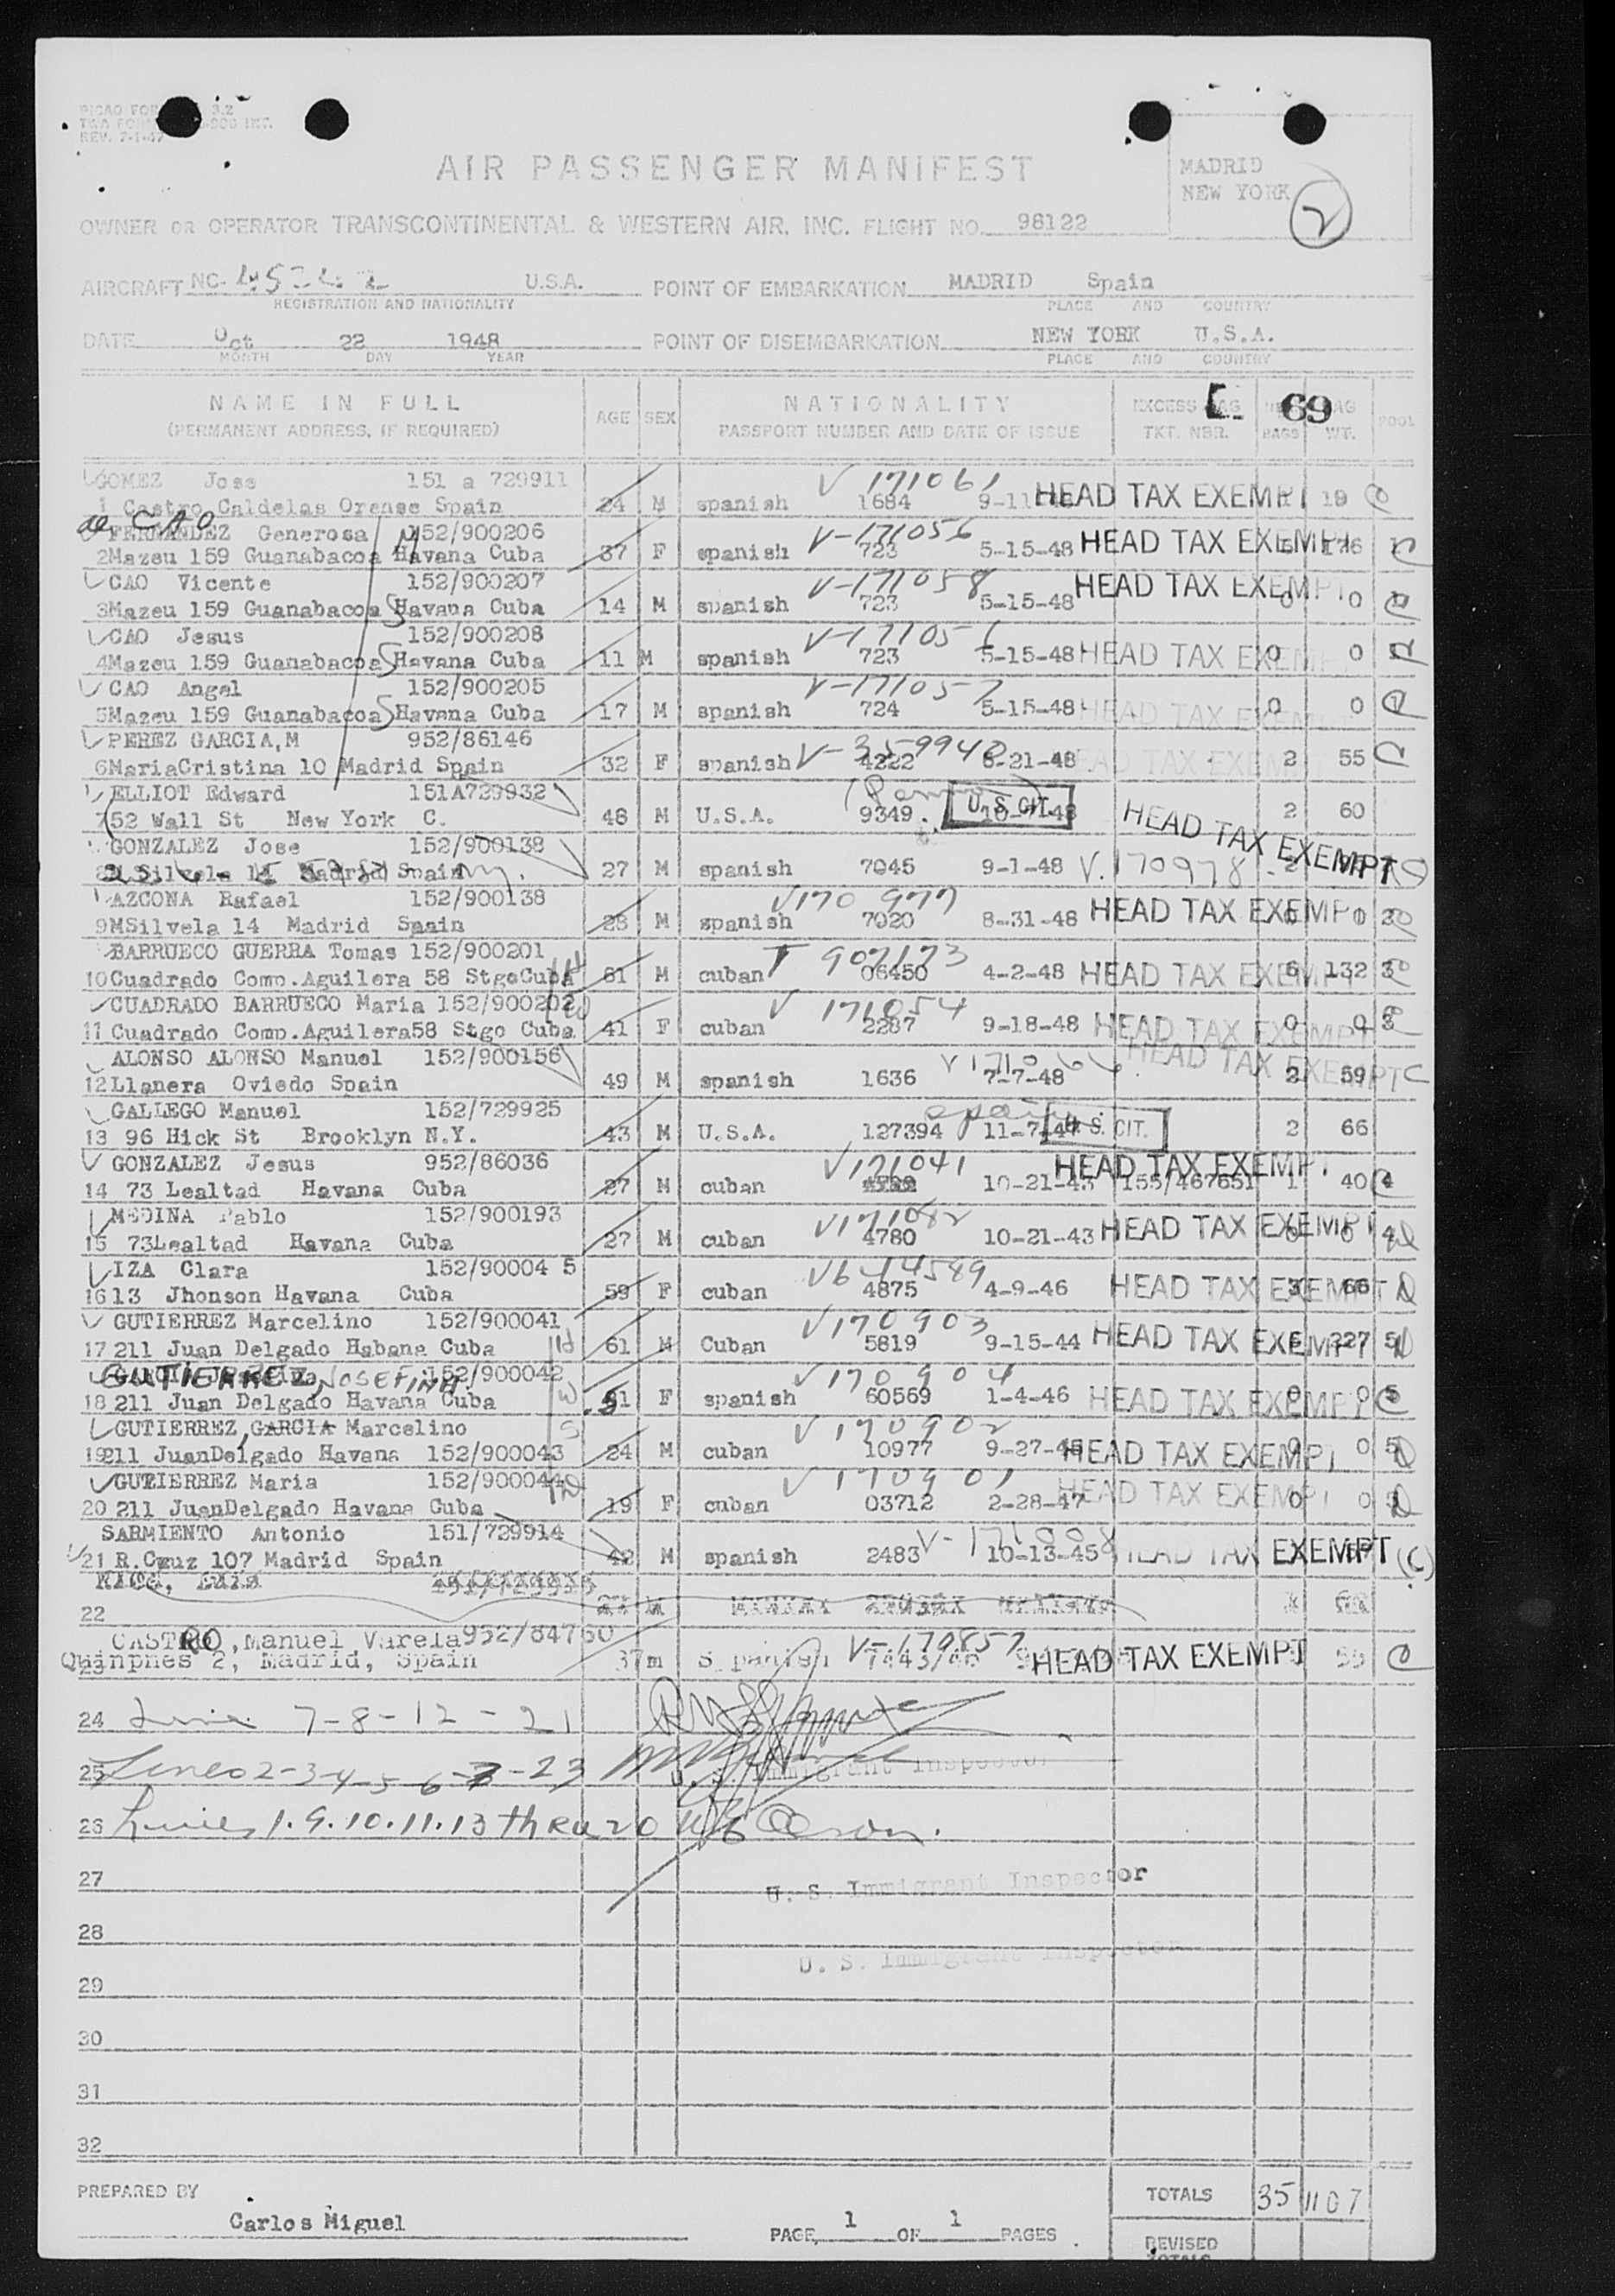 PICAO FOR 3.2
TWA FORM -900 INT.
REV. 7-1-47
AIR PASSENGER MANIFEST
MADRID
NEW YORK
2
OWNER OR OPERATOR TRANSCONTINENTAL & WESTERN AIR, INC. FLIGHT NO. 96122
AIRCRAFT NC- U.S.A. POINT OF EMBARKATION MADRID Spain
REGISTRATION AND NATIONALITY PLACE AND COUNTRY
DATE Oct 22 1948 POINT OF DISEMBARKATION NEW YORK U.S.A.
MONTH DAY YEAR PLACE AND COUNTRY
NAME IN FULL AGE SEX NATIONALITY EXCESS 69 POOL
(PERMANENT ADDRESS, IF REQUIRED) PASSPORT NUMBER AND DATE OF ISSUE TKT. NBR. BAGS WT.
GOMEZ Jose 151 a 729911 V 171061
1 Castro Caldelas Orense Spain 24 M spanish 1684 HEAD TAX EXEMPT 19 C
de CAO
FERNANDEZ Generosa 152/900206 V-171056
2 Mazeu 159 Guanabacoa Havana Cuba 37 F spanish 723 5-15-48 HEAD TAX EXEMPT 176
CAO Vicente 152/900207 V-171058
3 Mazeu 159 Guanabacoa Havana Cuba 14 M spanish 723 5-15-48 HEAD TAX EXEMPT 0 0
CAO Jesus 152/900208
4 Mazeu 159 Guanabacoa Havana Cuba 11 M spanish 723 5-15-48 HEAD TAX EXEMPT 0 0
CAO Angel 152/900205 V-171057
5 Mazeu 159 Guanabacoa Havana Cuba 17 M spanish 724 5-15-48 HEAD TAX EXEMPT 0 0
PEREZ GARCIA,M 952/86146 V-359940
6 MariaCristina 10 Madrid Spain 32 F spanish 4222 8-21-48 HEAD TAX EXEMPT 2 55 C
ELLIOT Edward 151A729932 U.S. CIT.
7 52 Wall St New York C. 48 M U.S.A. 9349 HEAD TAX EXEMPT 2 60
GONZALEZ Jose 152/900138
8 Silvela 14 Madrid Spain 27 M spanish 7045 9-1-48 V.170978 2
AZCONA Rafael 152/900138 V170 977
9 MSilvela 14 Madrid Spain 28 M spanish 7020 8-31-48 HEAD TAX EXEMPT 0
BARRUECO GUERRA Tomas 152/900201 T 907173
10 Cuadrado Comp.Aguilera 58 StgoCuba 61 M cuban 06450 4-2-48 HEAD TAX EXEMPT 6 132 3
CUADRADO BARRUECO Maria 152/900202 V 171054
11 Cuadrado Comp.Aguilera58 Stgo Cuba 41 F cuban 2287 9-18-48 HEAD TAX EXEMPT 0 0 3
ALONSO ALONSO Manuel 152/900156 V 171066 HEAD TAX EXEMPT
12 Llanera Oviedo Spain 49 M spanish 1636 7-7-48 2 59 C
GALLEGO Manuel 152/729925 Spain U.S. CIT.
13 96 Hick St Brooklyn N.Y. 43 M U.S.A. 127394 11-7-47 2 66
GONZALEZ Jesus 952/86036 V171041 HEAD TAX EXEMPT
14 73 Lealtad Havana Cuba 27 M cuban 10-21-43 155/467651 1 40 4
MEDINA Pablo 152/900193 V171082
15 73Lealtad Havana Cuba 27 M cuban 4780 10-21-43 HEAD TAX EXEMPT 0 0 4
IZA Clara 152/90004 5 V614589
16 13 Jhonson Havana Cuba 59 F cuban 4875 4-9-46 HEAD TAX EXEMPT 3 66
GUTIERREZ Marcelino 152/900041 V170903
17 211 Juan Delgado Habana Cuba 61 M Cuban 5819 9-15-44 HEAD TAX EXEMPT 227 5
GUTIERREZ JOSEFINA 152/900042 V170904
18 211 Juan Delgado Havana Cuba 51 F spanish 60569 1-4-46 HEAD TAX EXEMPT 0 0 5
GUTIERREZ, GARCIA Marcelino V 170902
19 211 JuanDelgado Havana 152/900043 24 M cuban 10977 HEAD TAX EXEMPT 0 0 5
GUTIERREZ Maria 152/900044 V 170901
20 211 JuanDelgado Havana Cuba 19 F cuban 03712 2-28-47 HEAD TAX EXEMPT 0 0 5
SARMIENTO Antonio 151/729914 V-171008
21 R.Cruz 107 Madrid Spain 42 M spanish 2483 10-13-45 HEAD TAX EXEMPT (C)
22
CASTRO, Manuel Varela 952/84760 V-170857
23 Quinpnes 2, Madrid, Spain 37 m Spanish 7443/46 HEAD TAX EXEMPT 55 C
24 Line 7-8-12-21
25 Lines 2-3-4-5-6-7-23 U. S. Immigrant Inspector
26 Lines 1.9.10.11.13 thru 20
27
U. S. Immigrant Inspector
28
U. S. Immigrant Inspector
29
30
31
32
PREPARED BY TOTALS 35 1107
Carlos Miguel
PAGE 1 OF 1 PAGES REVISED
TOTALS